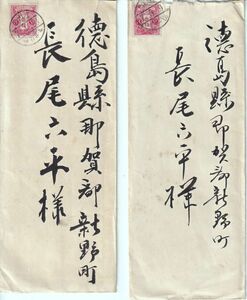 徳島縣那賀郡新野町
長尾六平様
徳島縣那賀郡新野町
長尾六平様